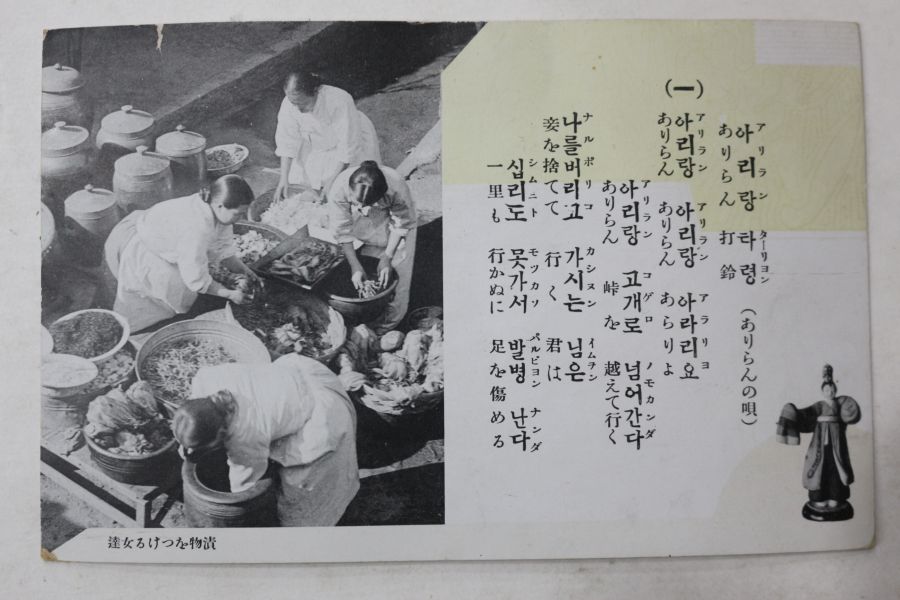 アリラン ターリヨン
아리랑 타령
ありらん 打鈴 (ありらんの唄)
(一)
アリラン アリラン アラリヨ
아리랑 아리랑 아라리요
ありらん ありらん あらりよ
アリラン コゲロ ノモカンダ
아리랑 고개로 넘어간다
ありらん 峠を 越えて行く
ナルポリコ カシヌン
나를버리고 가시는 님은
妾を捨てて 行く 君は
シムニト モツカソ パルビヨン ナンダ
십리도 못가서 발병 난다
一里も 行かぬに 足を傷める
漬物をつける女達